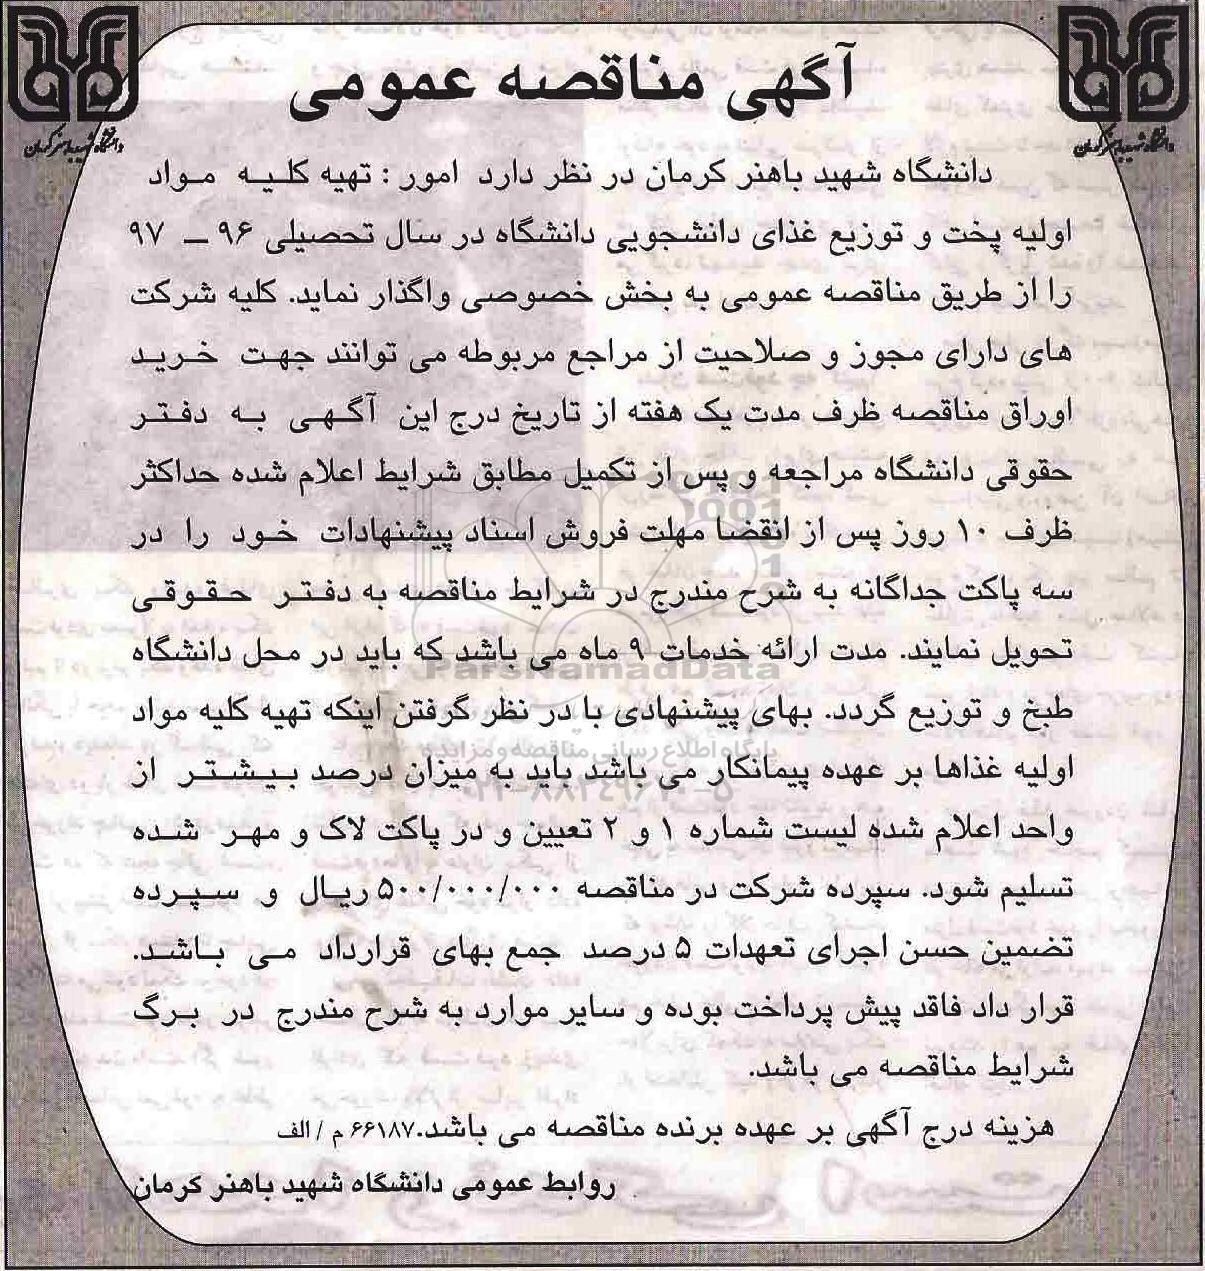 آگهی مناقصه عمومی
دانشگاه شهید باهنر کرمان
دانشگاه شهید باهنر کرمان
دانشگاه شهید باهنر کرمان در نظر دارد امور : تهیه کلیه مواد
اولیه پخت و توزیع غذای دانشجویی دانشگاه در سال تحصیلی ۹۶ – ۹۷
را از طریق مناقصه عمومی به بخش خصوصی واگذار نماید. کلیه شرکت
های دارای مجوز و صلاحیت از مراجع مربوطه می توانند جهت خرید
اوراق مناقصه ظرف مدت یک هفته از تاریخ درج این آگهی به دفتر
حقوقی دانشگاه مراجعه و پس از تکمیل مطابق شرایط اعلام شده حداکثر
ظرف ۱۰ روز پس از انقضا مهلت فروش اسناد پیشنهادات خود را در
سه پاکت جداگانه به شرح مندرج در شرایط مناقصه به دفتر حقوقی
تحویل نمایند. مدت ارائه خدمات ۹ ماه می باشد که باید در محل دانشگاه
طبخ و توزیع گردد. بهای پیشنهادی با در نظر گرفتن اینکه تهیه کلیه مواد
اولیه غذاها بر عهده پیمانکار می باشد باید به میزان درصد بیشتر از
واحد اعلام شده لیست شماره ۱ و ۲ تعیین و در پاکت لاک و مهر شده
تسلیم شود. سپرده شرکت در مناقصه ۵۰۰/۰۰۰/۰۰۰ ریال و سپرده
تضمین حسن اجرای تعهدات ۵ درصد جمع بهای قرارداد می باشد.
قرار داد فاقد پیش پرداخت بوده و سایر موارد به شرح مندرج در برگ
شرایط مناقصه می باشد.
هزینه درج آگهی بر عهده برنده مناقصه می باشد. ۶۶۱۸۷ م / الف
روابط عمومی دانشگاه شهید باهنر کرمان
ParsNamadData
پایگاه اطلاع رسانی مناقصه و مزایده